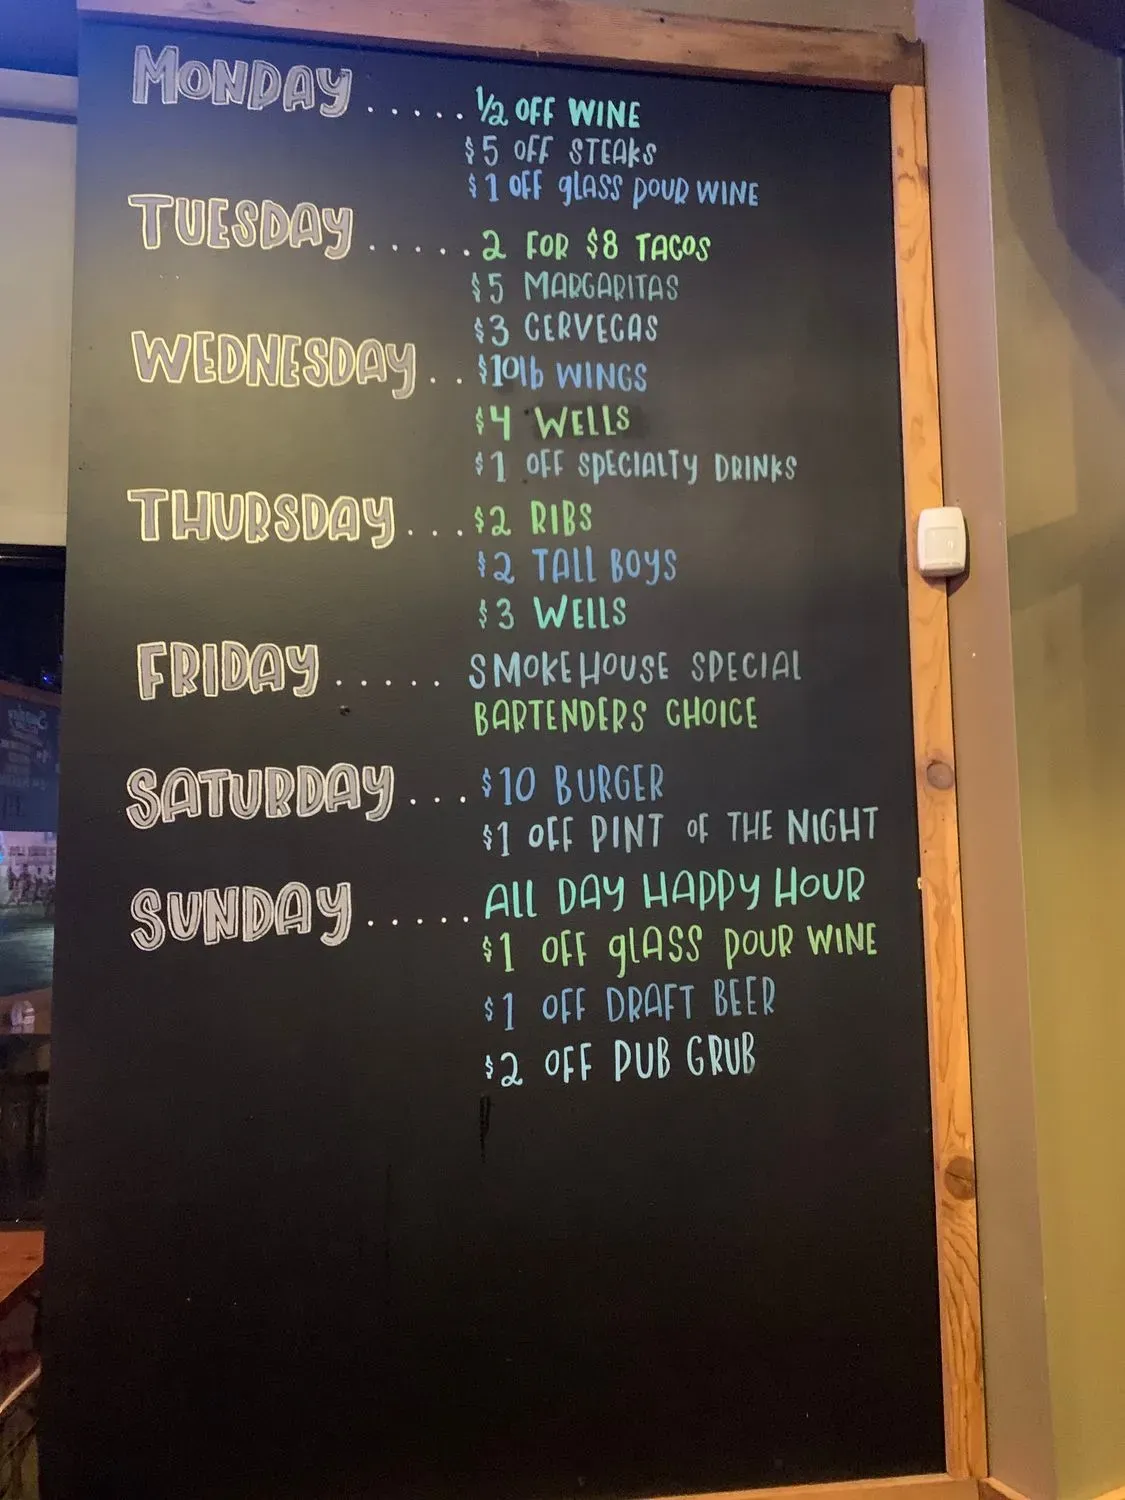 MONDAY ..... 1/2 OFF WINE
$5 OFF STEAKS
$1 OFF glASS POUR WINE
TUESDAY ..... 2 FOR $8 TACOS
$5 MARGARITAS
$3 CERVECAS
WEDNESDAY .. $10lb WINGS
$4 WELLS
$1 OFF SPECIALTY DRINKS
THURSDAY ... $2 RIBS
$2 TALL BOYS
$3 WELLS
FRIDAY ..... SMOKEHOUSE SPECIAL
BARTENDERS CHOICE
SATURDAY ... $10 BURGER
$1 OFF PINT OF THE NIGHT
SUNDAY ..... ALL DAY HAPPY HOUR
$1 OFF glASS POUR WINE
$1 OFF DRAFT BEER
$2 OFF PUB GRUB